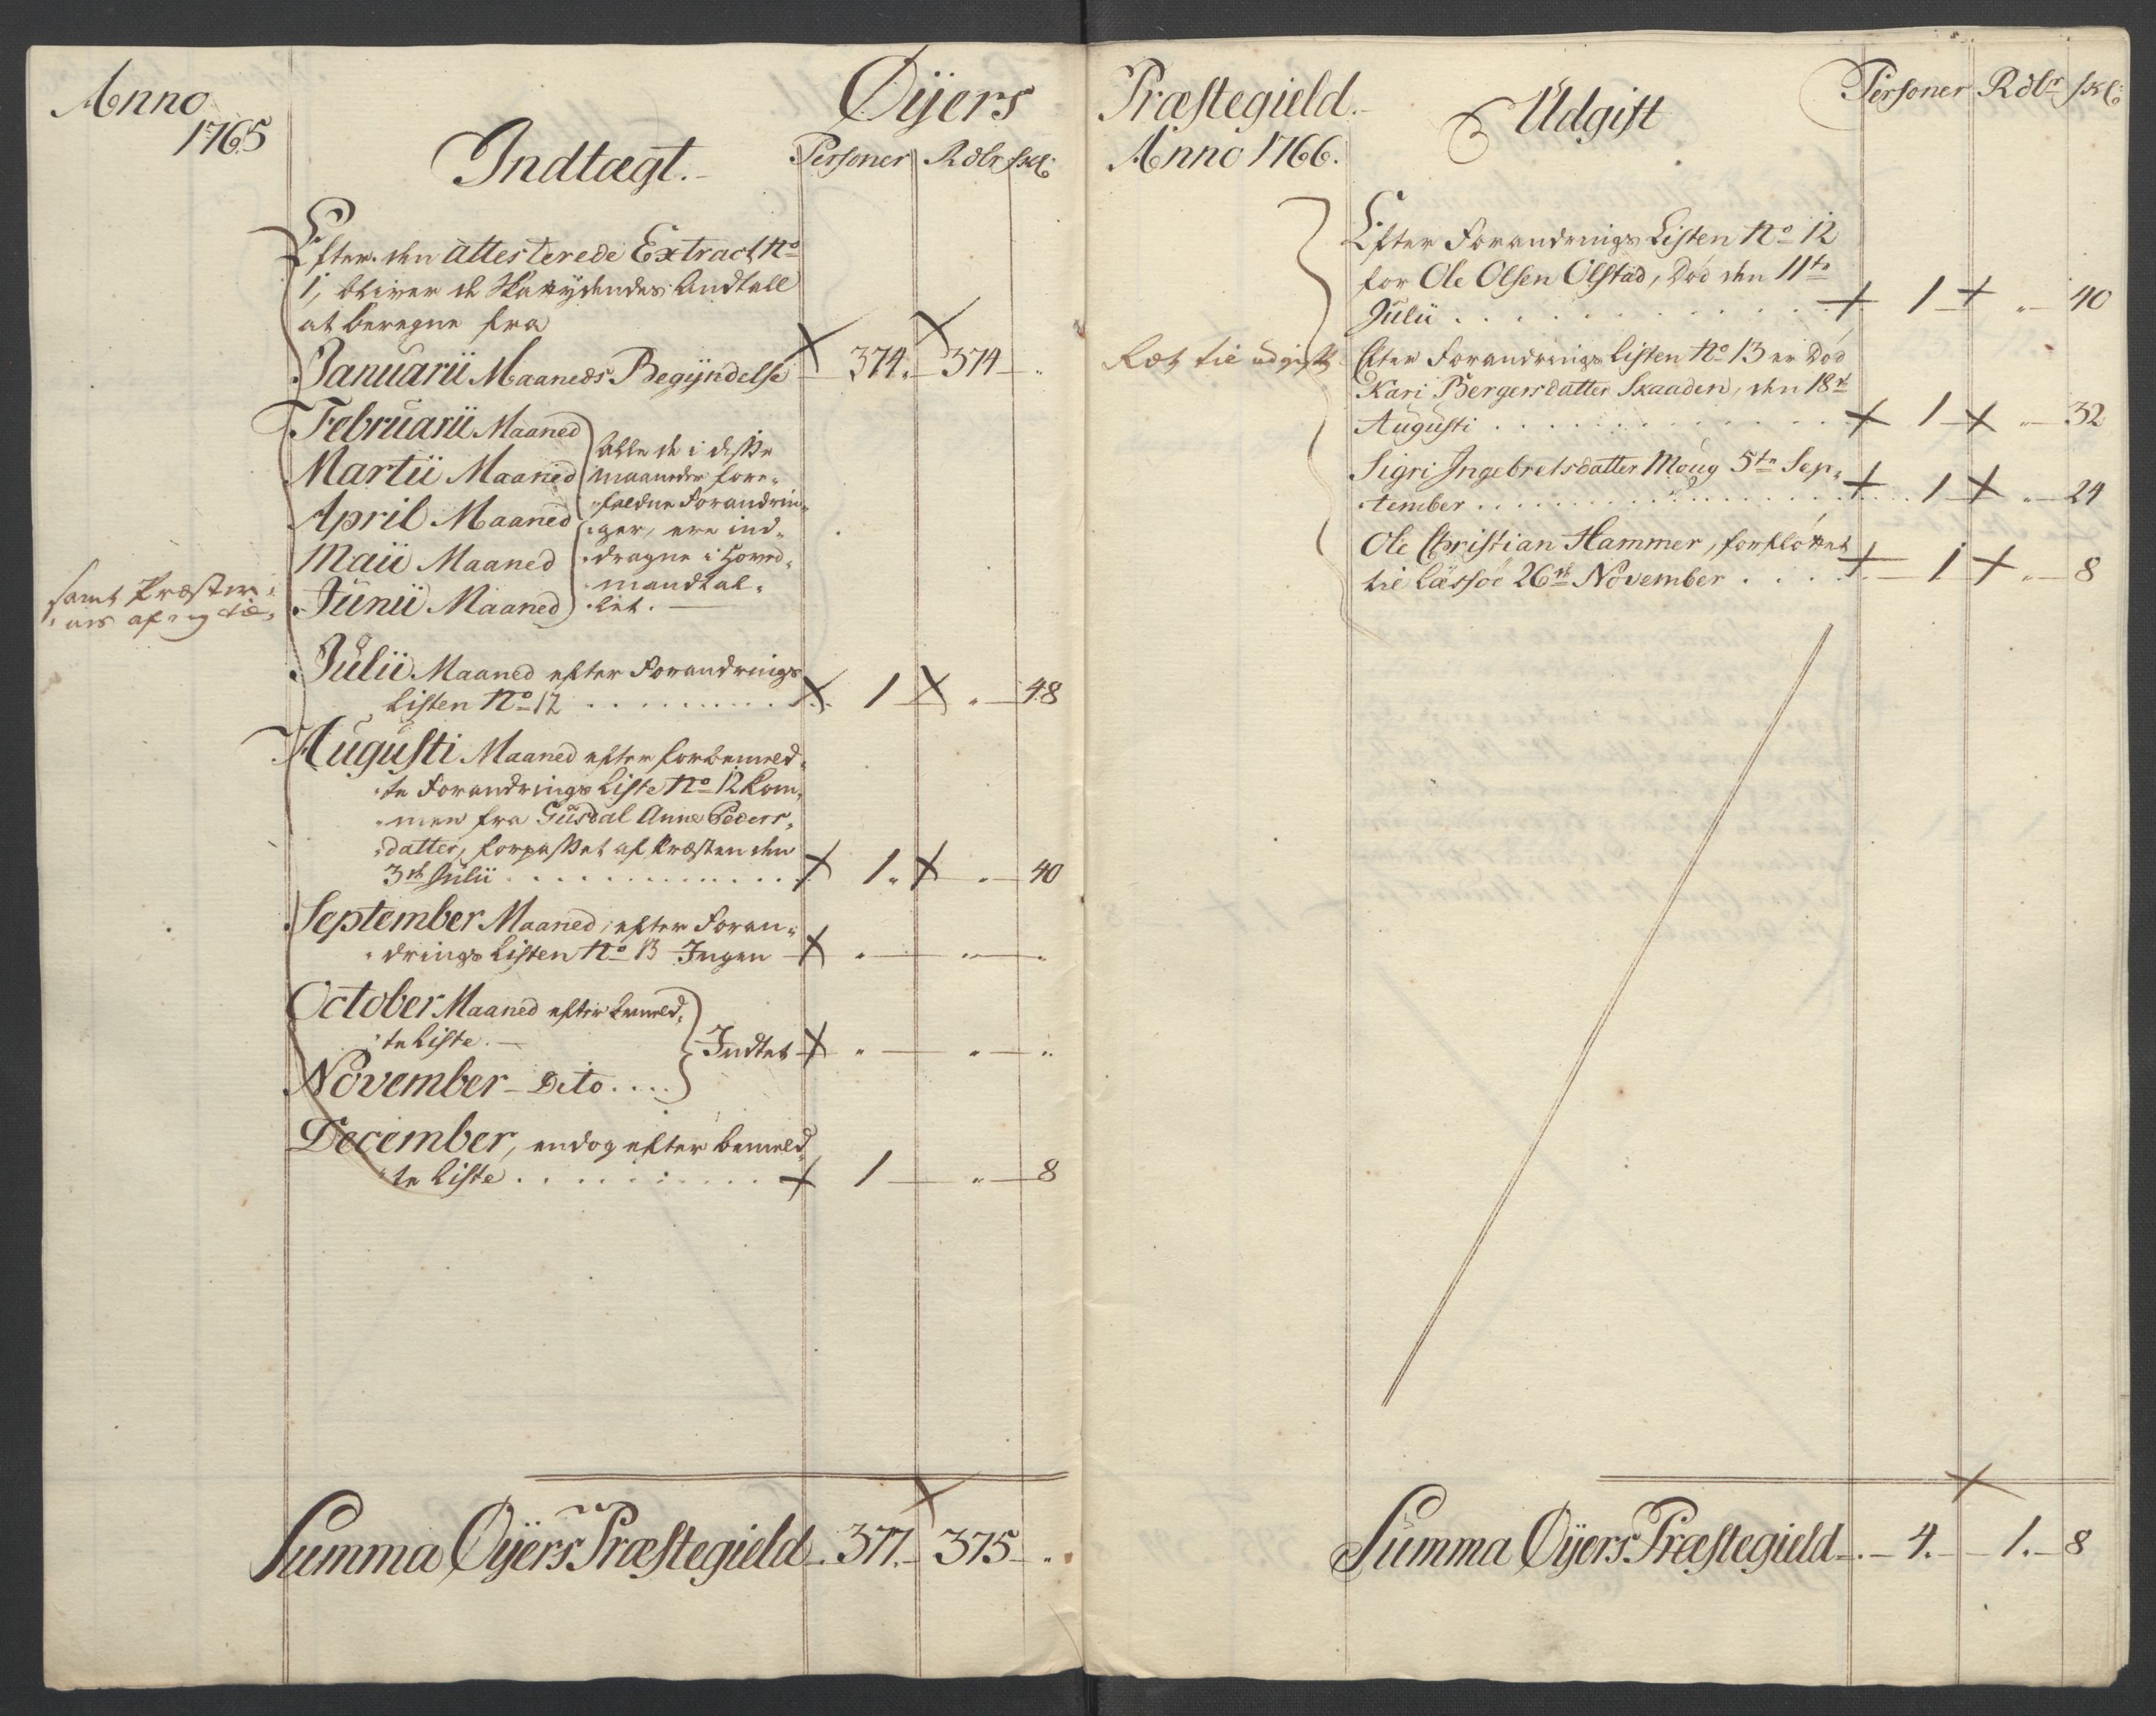 Anno
1765
Øijers
Indtægt.
Personer Rdlr skl:
Efter den attesterede Extract No
1, bliver de Skattÿdendes Andtall
at beregne fra
Januarii Maaneds Begÿndelse 374. 374 "
Februarii Maaned
Martii Maaned
April Maaned
Maii Maaned
Junii Maaned
Alle de i disse
maaneder fore-
faldne Forandrin-
ger, ere ind-
dragne i Hoved-
mandtal-
let.
samt Præstens
Julii Maaned efter Forandrings
Listen No 12 . . . . . . . . . 1 " 48
Augusti Maaned efter forbemeld-
te Forandrings Liste No 12 kom-
men fra Gusdal Anne Peders-
datter, forpasset af Præsten den
3de Julii . . . . . . . . . . . . 1 " 40
September Maaned, efter Foran-
drings Listen No 13 Ingen " " "
October Maaned efter bemeld-
te Liste.
Indtet " " "
November Dito . . . .
December, endog efter bemeld-
te Liste . . . . . . . . . 1 " 8
Summa Øijers Præstegield 377. 375 "
Præstegield.
Anno 1766.
Udgift
Personer Rdlr skl:
Efter Forandrings Listen No 12
for Ole Olsen Olstad, Død den 11te
Julii . . . . . . . . . . . . 1 " 40
Ret til udgift
Efter Forandrings Listen No 13 er Død
Kari Bergersdatter Skaaden, den 18de
Augusti . . . . . . . . . . . . 1 " 32
Sigri Ingebretsdatter Moug 5te Sep-
tember . . . . . . . . . . . . 1 " 24
Ole Christian Hammer, forflöttet
til Læssöe 26de November . . . . 1 " 8
Summa Øijers Præstegield 4. 1. 8